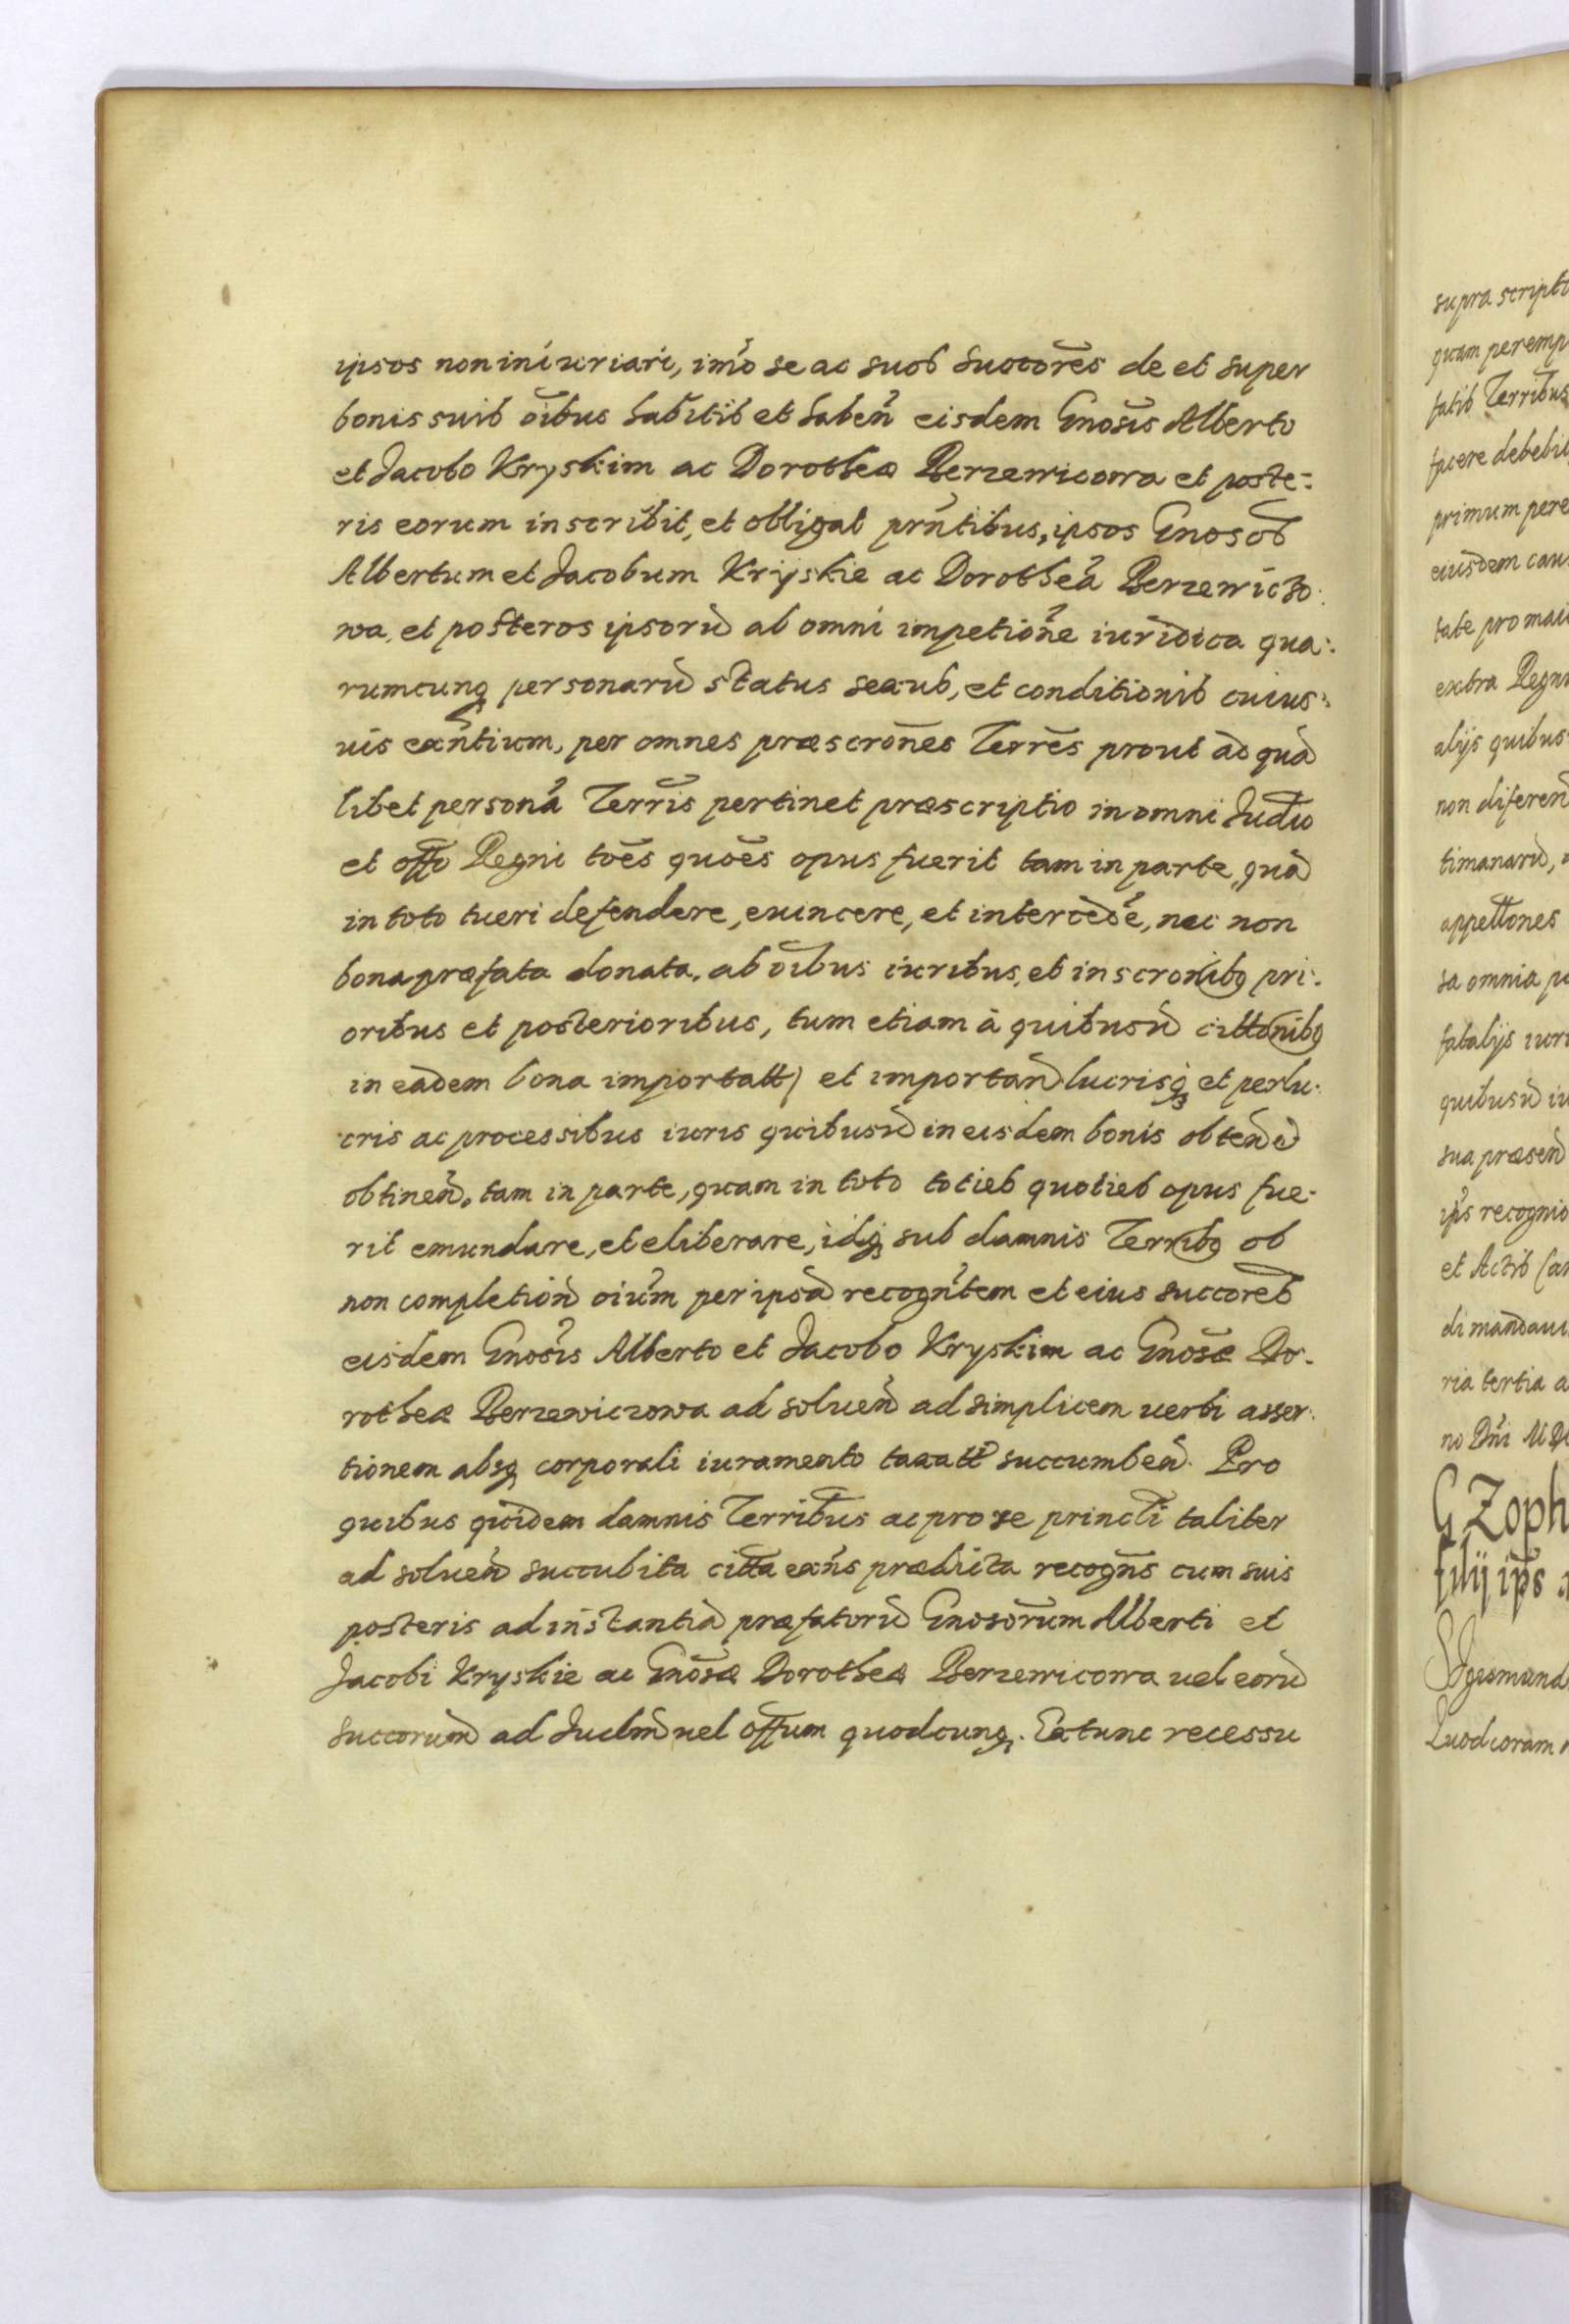 ipsos non iniuriari, imo se ac suos Succores de et super
bonis suis oibus habitis et haben eisdem Gnosis Alberto
et Jacobo Kryskim ac Dorotheæ Berzewicowa et poste-
ris eorum inscribit, et obligat pntibus, ipsos Gnosos
Albertum et Jacobum Kryskie ac Dorotheã Berzewiczo-
wa, et posteros ipsorũ ab omni impetione iuridica qua-
rumcunq personarũ status sexus, et conditionis cuius-
uis exntium, per omnes præscrones Terres prout ad quã
libet personã Terris pertinet præscriptio in omni Judio
et offo Regni toes quoes opus fuerit tam in parte, quã
in toto tueri defendere, euincere, et intercede, nec non
bona præfata donata, ab oibus iuribus, et inscronibq pri-
oribus et posterioribus, tum etiam à quibusũ cittonibq
in eadem bona importatt) et importañ lucrisq et perlu-
cris ac processibus iuris quibusũ in eisdem bonis obtent
obtineñ, tam in parte, quam in toto toties quoties opus fue-
rit emundare, et eliberare, idq sub damnis Terribq ob
non completionẽ oium per ipsã recogntem et eius succores
eisdem Gnosis Alberto et Jacobo Kryskim ac Gnosæ Do-
rotheæ Berzewiczowa ad soluen ad simplicem uerbi asser-
tionem absq corporali iuramento taxatt succumben. Pro
quibus quidem damnis Terribus ac pro re princli taliter
ad soluen succubita citta exns prædicta recogns cum suis
posteris ad instantiã præfatorũ Gnosorum Alberti et
Jacobi Kryskie ac Gnosæ Dorotheæ Berzewicowa uel eorũ
succorum ad Judm uel offum quodcunq. Extunc recessu
supra scripto
quam peremp
fatis Terribus
facere debebi
primum pere
eiusdem cau
tate pro mai
extra Regn
alijs quibus
non diferen
timanarũ,
appettones
sa omnia p
fatalijs iuri
quibusũ iu
sua præsen
ips recognio
et Actis Ca
di mandaui
ria tertia a
no Dni MD
G Zoph
filij ips
Sigismund
Quod coram